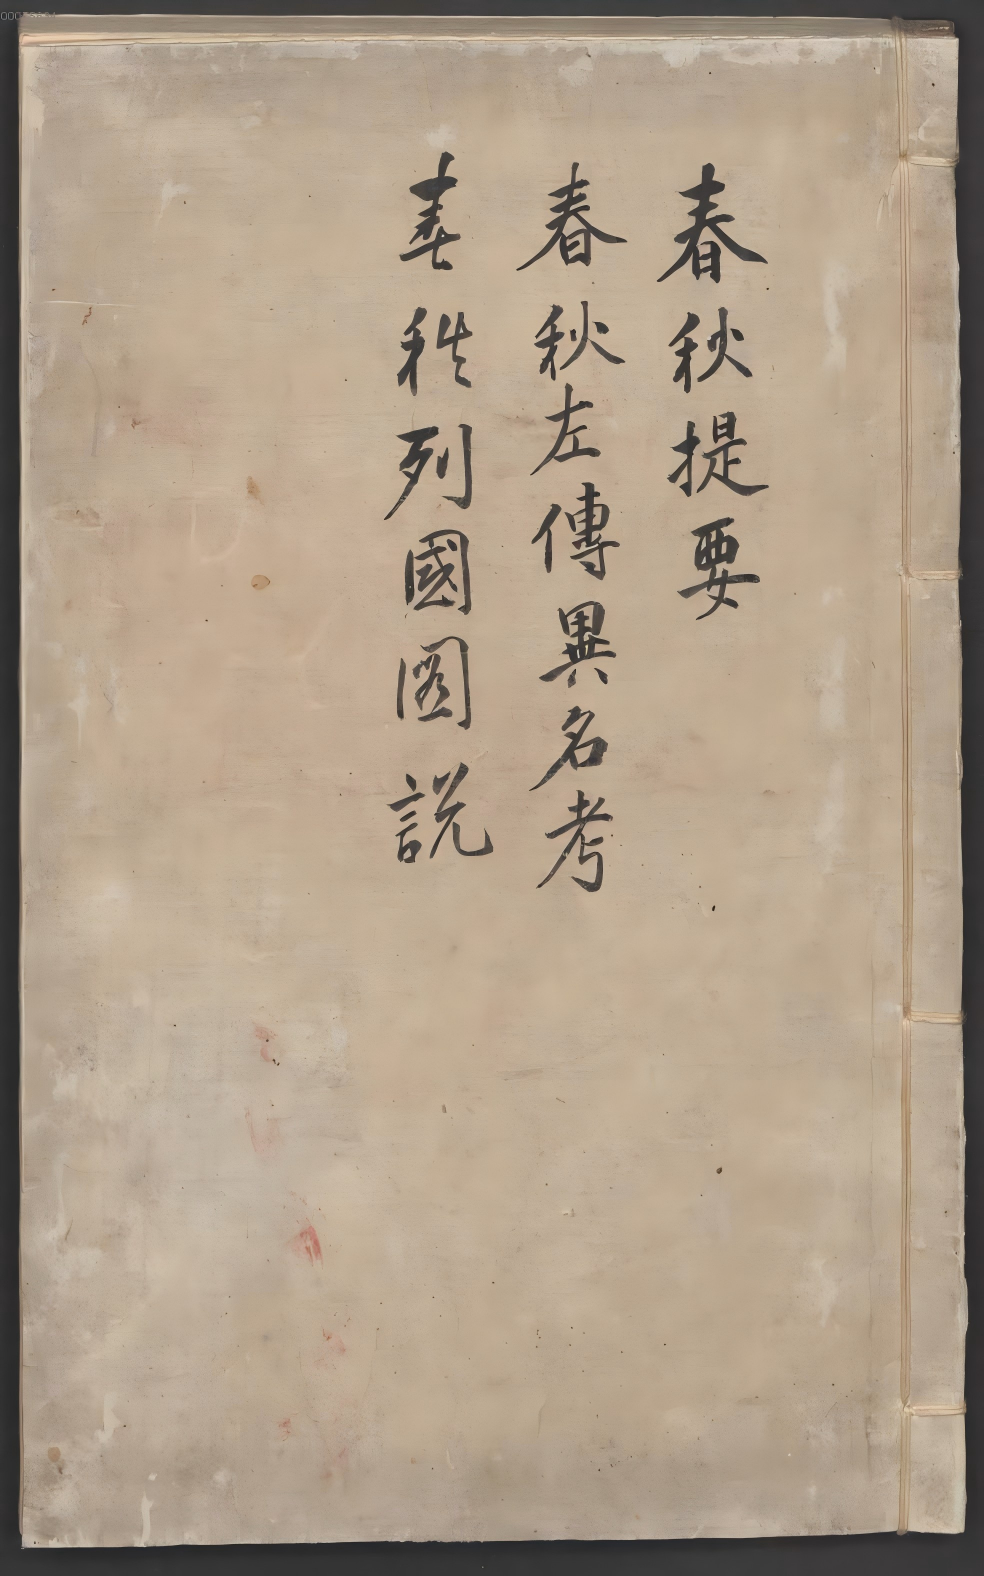 春秋提要
春秋左傳異名考
列國圖説